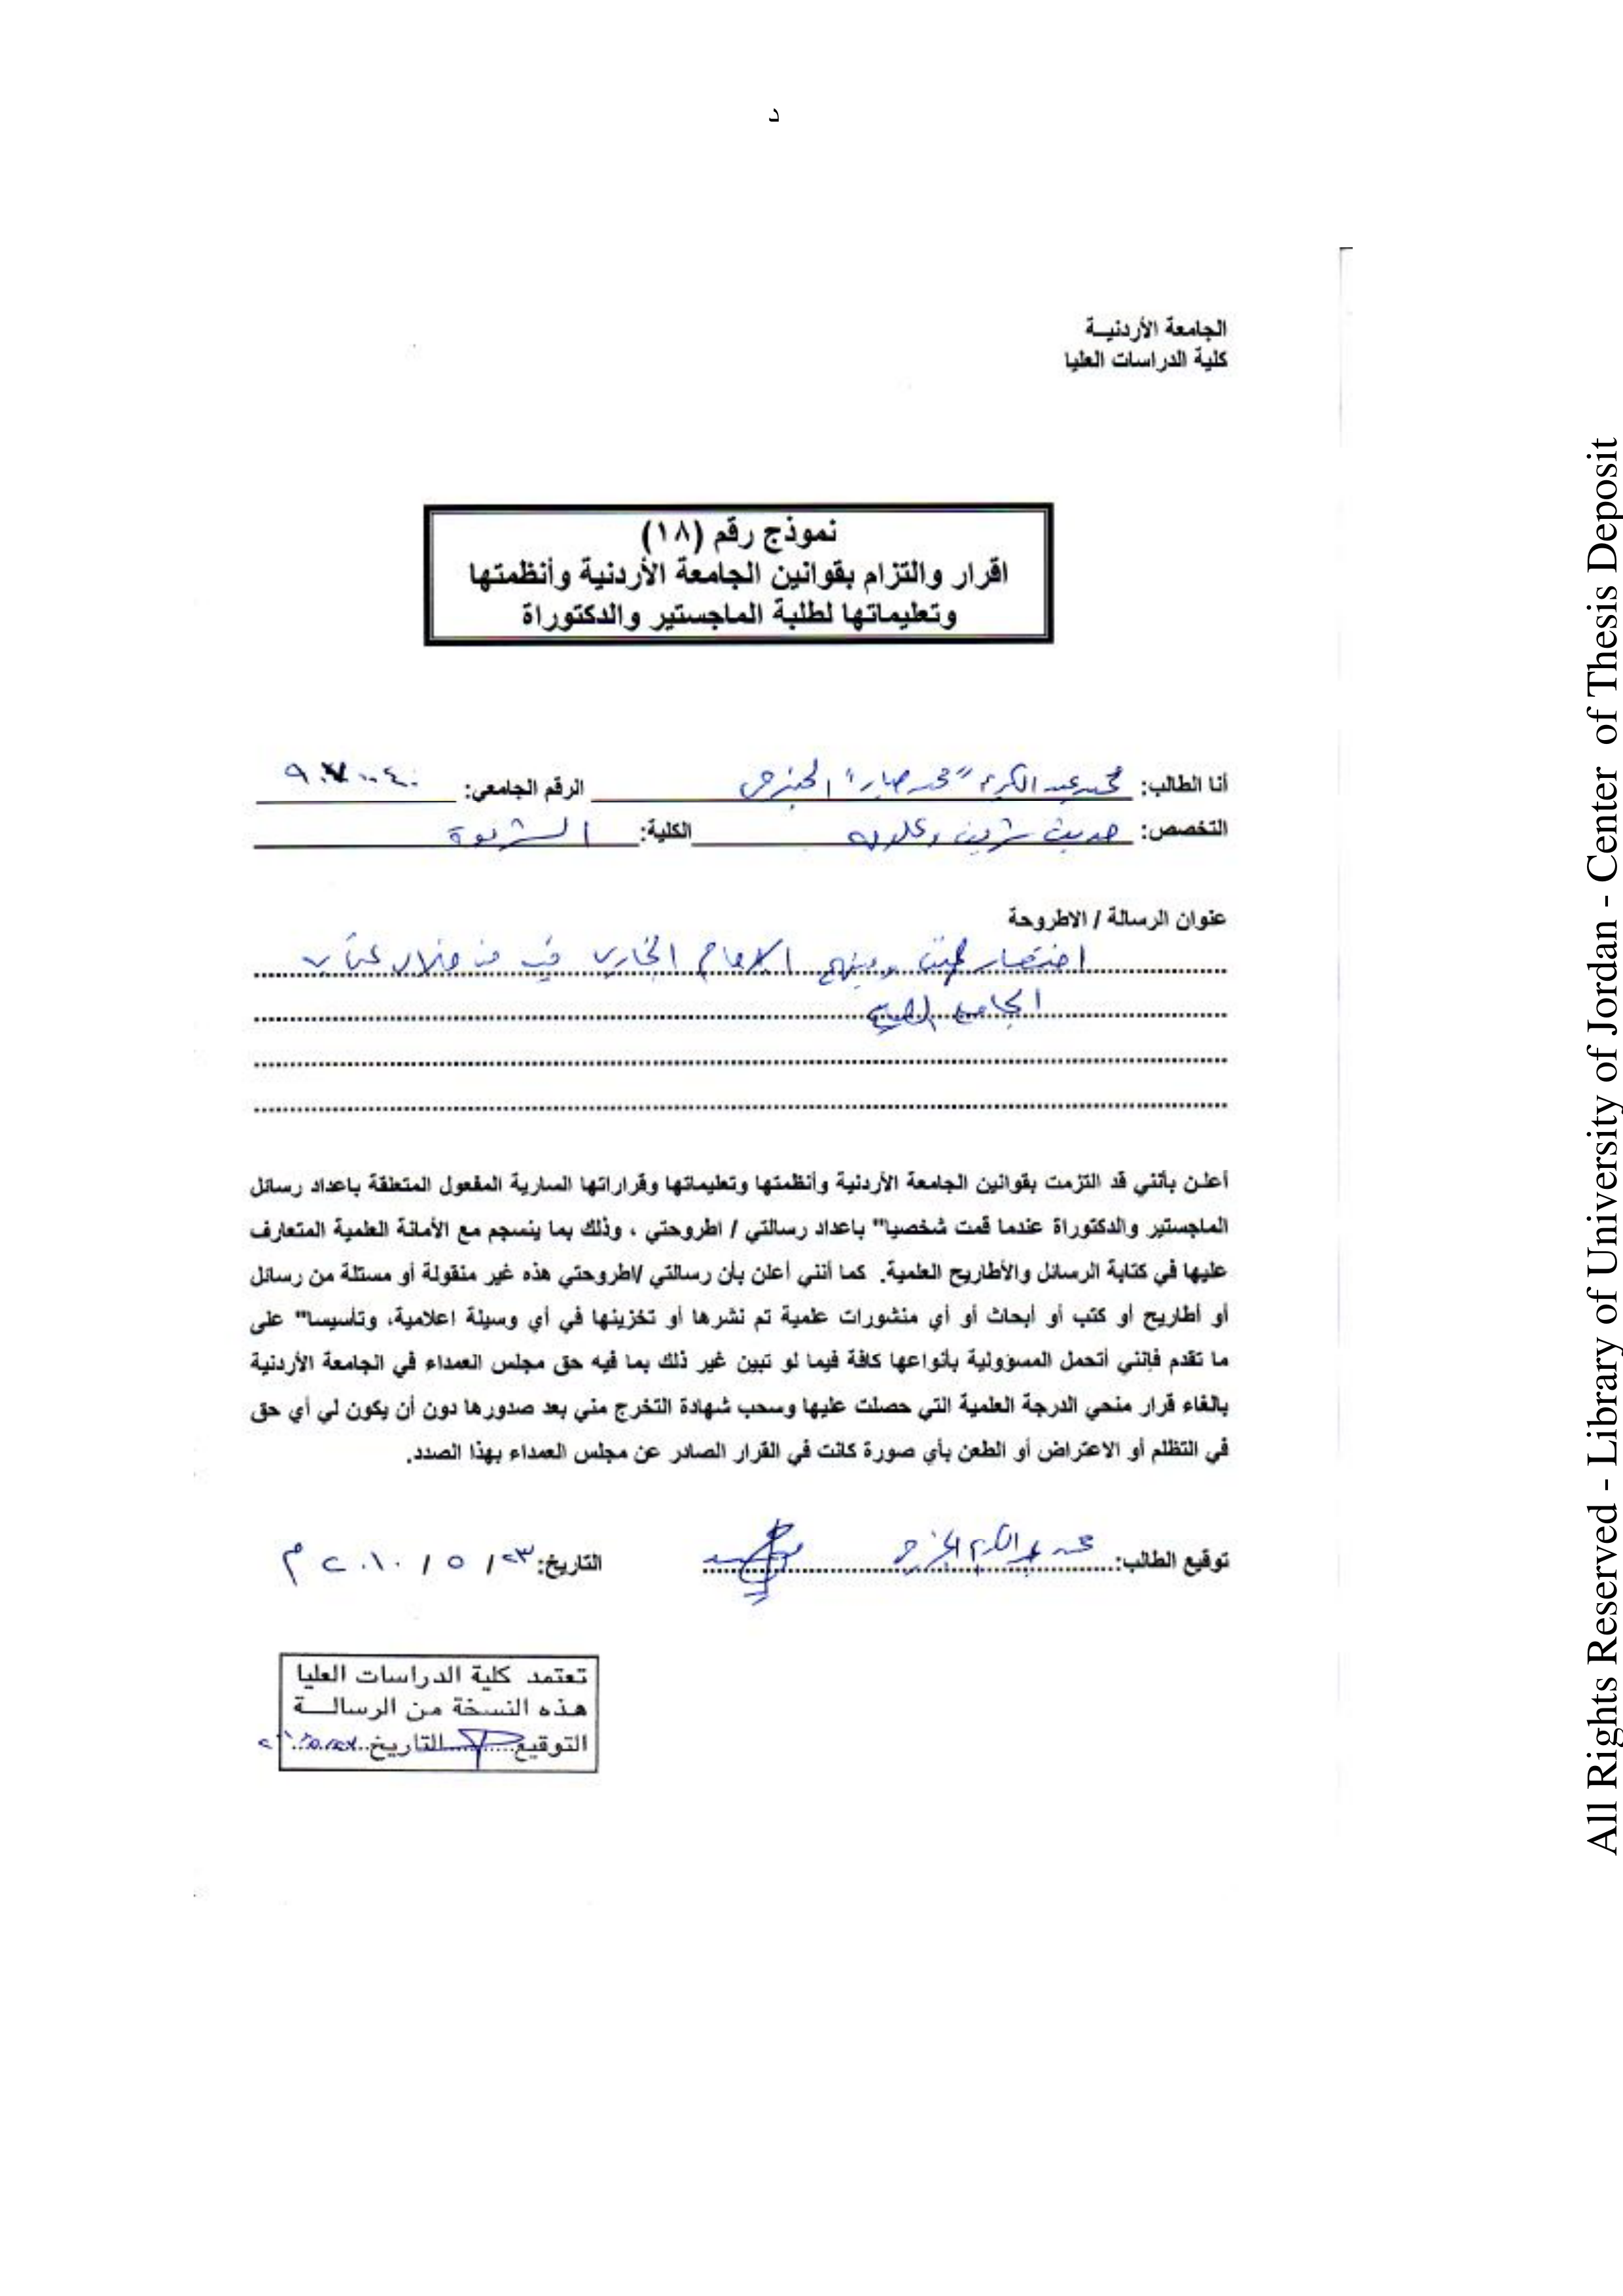 د
الجامعة الأردنيــة
كلية الدراسات العليا
نموذج رقم (١٨)
اقرار والتزام بقوانين الجامعة الأردنية وأنظمتها
وتعليماتها لطلبة الماجستير والدكتوراة
أنا الطالب: محمد عبد الكريم "محمد صابر" الرقم الجامعي:
التخصص: حديث شريف وعلومه الكلية: الشريعة
عنوان الرسالة / الاطروحة
اختصار الحديث ومنهج الامام البخاري فيه من خلال كتابه
الجامع الصحيح
أعلن بأنني قد التزمت بقوانين الجامعة الأردنية وأنظمتها وتعليماتها وقراراتها السارية المفعول المتعلقة باعداد رسائل
الماجستير والدكتوراة عندما قمت شخصيا" باعداد رسالتي / اطروحتي ، وذلك بما ينسجم مع الأمانة العلمية المتعارف
عليها في كتابة الرسائل والأطاريح العلمية. كما أنني أعلن بأن رسالتي /اطروحتي هذه غير منقولة أو مستلة من رسائل
أو أطاريح أو كتب أو أبحاث أو أي منشورات علمية تم نشرها أو تخزينها في أي وسيلة اعلامية، وتأسيسا" على
ما تقدم فإنني أتحمل المسؤولية بأنواعها كافة فيما لو تبين غير ذلك بما فيه حق مجلس العمداء في الجامعة الأردنية
بالغاء قرار منحي الدرجة العلمية التي حصلت عليها وسحب شهادة التخرج مني بعد صدورها دون أن يكون لي أي حق
في التظلم أو الاعتراض أو الطعن بأي صورة كانت في القرار الصادر عن مجلس العمداء بهذا الصدد.
توقيع الطالب: محمد عبد الكريم التاريخ: ٢٣ / ٥ / ٢٠١٠ م
تعتمد كلية الدراسات العليا
هذه النسخة من الرسالــة
التوقيع التاريخ
All Rights Reserved - Library of University of Jordan - Center of Thesis Deposit